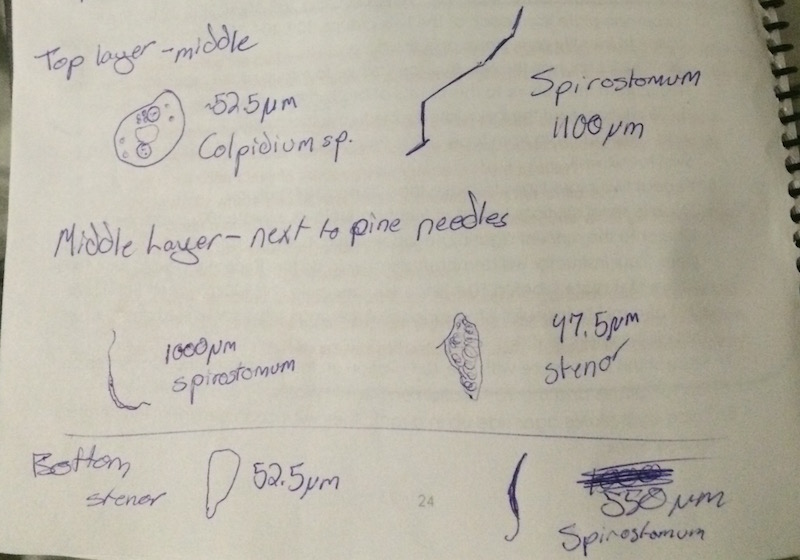 Top layer - middle
~52.5µm
Colpidium sp.
Spirostomum
1100µm
Middle Layer - next to pine needles
1000µm
spirostomum
47.5µm
stenor
Bottom
stenor
52.5µm
550µm
Spirostomum
24